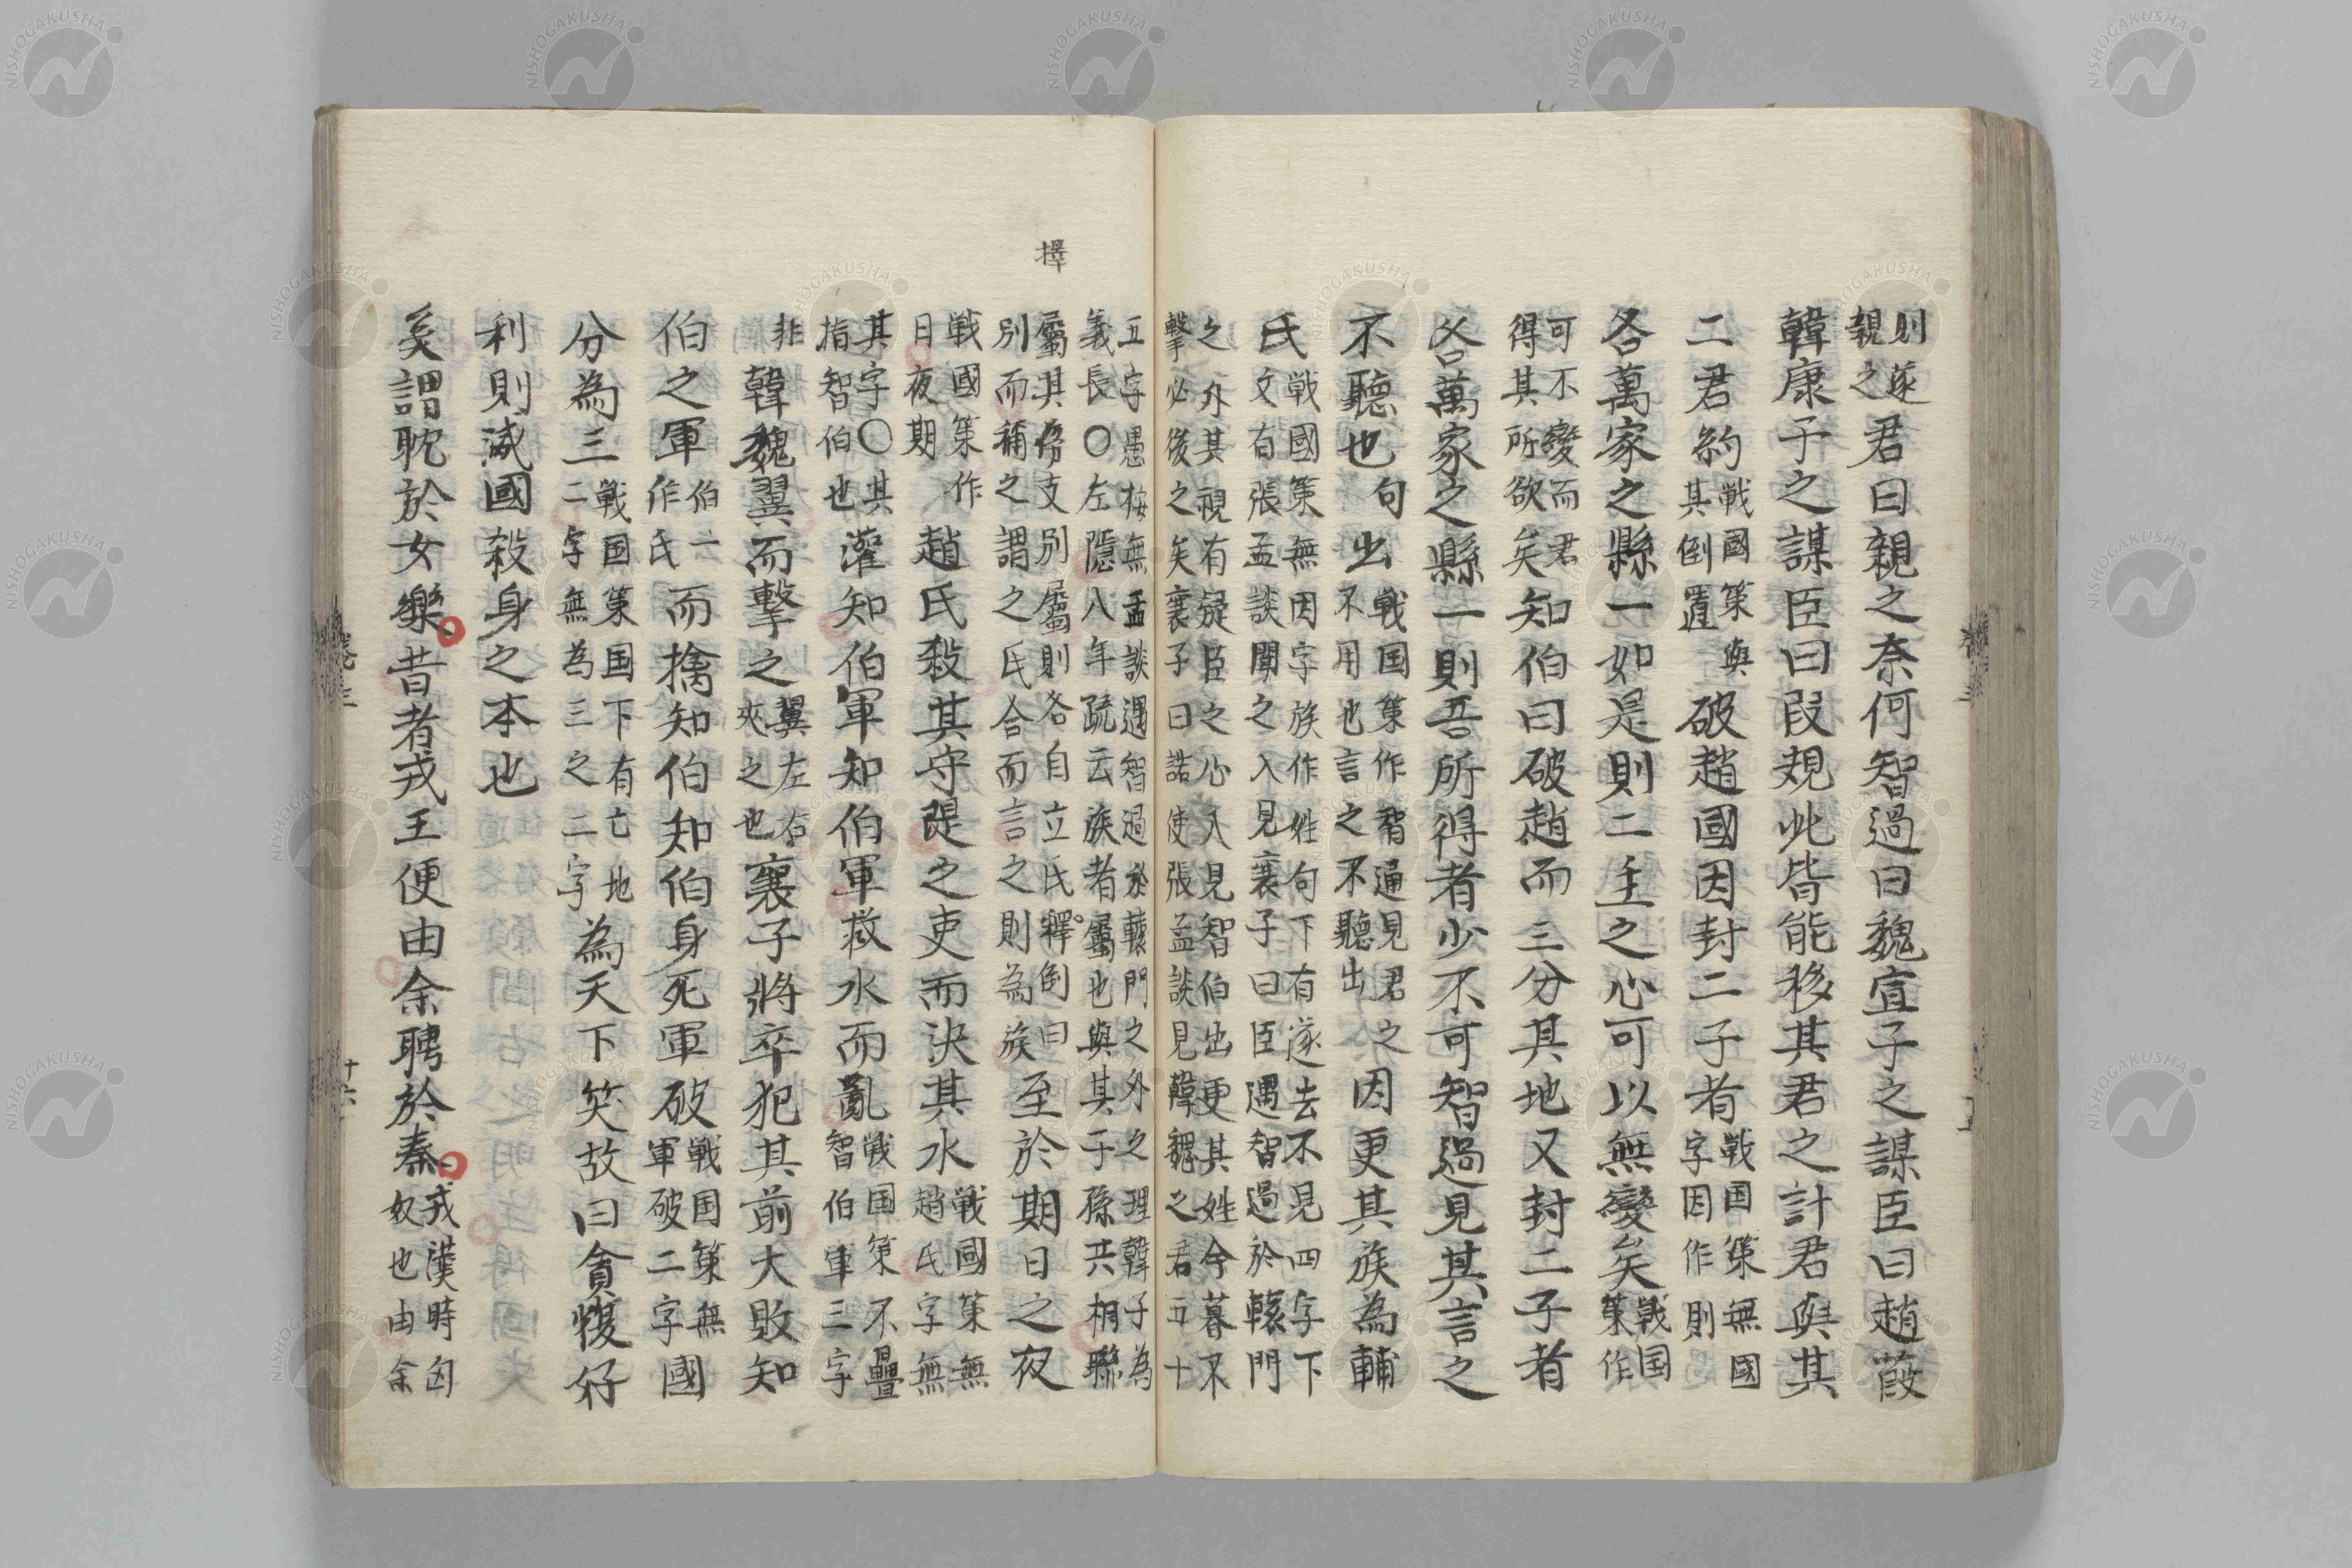 則遂
親之君曰親之奈何智過曰魏宣子之謀臣曰趙葭
韓康子之謀臣曰段規此皆能移其君之計君與其
二君約戦國策與
其倒置破趙國因封二子者戦国策無國
字因作則
各萬家之縣一如是則二主之心可以無變矣戦国
策作
可不變而君
得其所欲矣知伯曰破趙而三分其地又封二子者
各萬家之縣一則吾所得者少不可智過見其言之
不聽也句出戦国策作智過見君之
不用也言之不聽出因更其族為輔
氏戦國策無因字族作姓句下有遂去不見四字下
文有張孟談聞之入見襄子曰臣遇智過於轅門
之外其視有疑臣之心入見智伯出更其姓今暮不
擊必後之矣襄子曰諾使張孟談見韓魏之君五十
五字愚按無孟談遇智過於轅門之外之理韓子為
義長〇左隱八年疏云族者屬也與其子孫共相聯
屬其旁支別屬則各自立氏釋例曰
別而稱之謂之氏合而言之則為族至於期日之夜
戦國策作
日夜期趙氏殺其守隄之吏而決其水戦國策無
趙氏字無
其字〇其
指智伯也灌知伯軍知伯軍救水而亂戦国策不疊
智伯軍三字
非韓魏翼而擊之翼左右
夾之也襄子將卒犯其前大敗知
伯之軍伯一
作氏而擒知伯知伯身死軍破戦国策無
軍破二字國
分為三戦国策国下有亡地
二字無為三之二字為天下笑故曰貪愎好
利則滅國殺身之本也
奚謂耽於女樂昔者戎王使由余聘於秦戎漢時匈
奴也由余
擇
十六